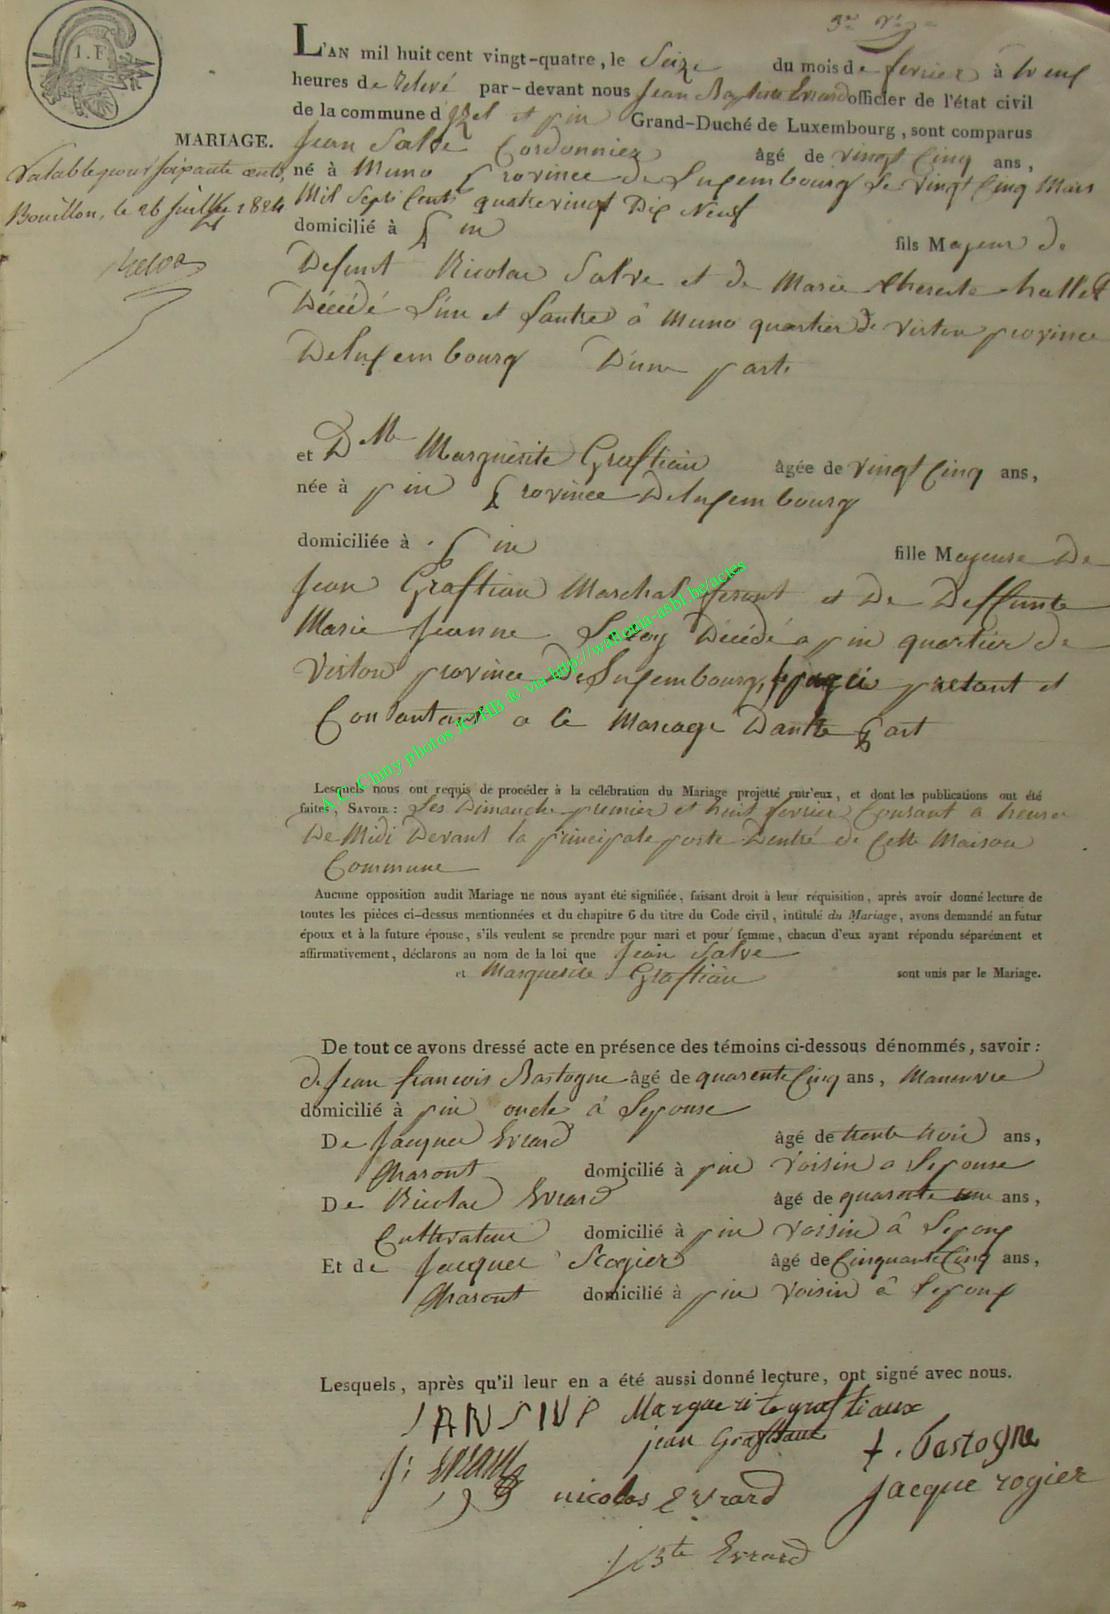 I. F.
L'AN mil huit cent vingt-quatre, le Seize du mois de fevrier à neuf
heures de relevé par-devant nous Jean Baptiste Evrard officier de l'état civil
de la commune d'izel et pin Grand-Duché de Luxembourg, sont comparus
MARIAGE.
Valable pour soixante cents,
Bouillon, le 26 Juillet 1824
Jean Salve Cordonnier âgé de vingt Cinq ans,
né à Muno province de Luxembourg le vingt Cinq Mars
Mil Sept Cents quatrevingt Dix Neuf
domicilié à pin fils Majeur de
Defunt Nicolas Salve et de Marie therese hallet
Décédé L'un et Lautre à Muno quartier de virton province
DeLuxembourg D'une part.
et Dlle Marguerite Grastiau âgée de vingt Cinq ans,
née à pin province DeLuxembourg
domiciliée à pin fille Majeure De
Jean Grastiau Marchal ferant et De Deffunte
Marie Jeanne Décédé a pin quartier de
virton province DeLuxembourg, pretant et
Consantant a le Mariage Dautre part
Lesquels nous ont requis de procéder à la célébration du Mariage projetté entr'eux, et dont les publications ont été
faites, SAVOIR : Les Dimanche premier et huit fevrier Courant a heure
De Midi Devant la principale porte Dentré de Cette Maison
Commune
Aucune opposition audit Mariage ne nous ayant été signifiée, faisant droit à leur réquisition, après avoir donné lecture de
toutes les pièces ci-dessus mentionnées et du chapitre 6 du titre du Code civil, intitulé du Mariage, avons demandé au futur
époux et à la future épouse, s'ils veulent se prendre pour mari et pour femme, chacun d'eux ayant répondu séparément et
affirmativement, déclarons au nom de la loi que Jean Salve
et Marguerite Grastiau sont unis par le Mariage.
De tout ce avons dressé acte en présence des témoins ci-dessous dénommés, savoir :
de Jean francois Bastogne âgé de quarente Cinq ans, Maneuvre
domicilié à pin oncle à Lepouse
De Jacques Evrard âgé de trente trois ans,
Charont domicilié à pin voisin a Lepouse
De Nicolas Evrard âgé de quarente une ans,
Cultivateur domicilié à pin voisin à Lepoux
Et de Jacques Rogier âgé de Cinquante Cinq ans,
Charont domicilié à pin voisin à Lepoux
Lesquels, après qu'il leur en a été aussi donné lecture, ont signé avec nous.
Marguerite grastiaux
jean Grastiaux
f. bastogne
j: Evrard
nicolas Evrard
Jacque rogier
J Bte Evrard
A.E. Chiny photos JCHB ® via http://wallonia-asbl.be/actes